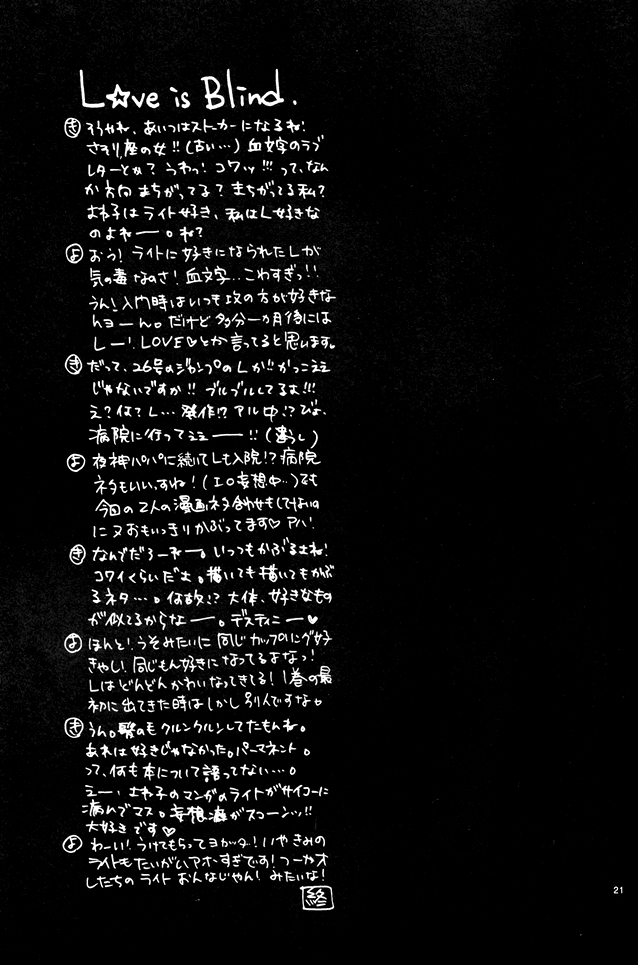 L☆ve is Blind.
き そうやね、あいつはストーカーになるね!
さそり座の女!!(古い…)血文字のラブ
レターとか? うわっ! コワッ!!! って、なん
か方向まちがってる? まちがってる私?
よね子はライト好き、私はL好きな
のよねーー。ね?
よ おう! ライトに好きになられたLが
気の毒なのさ! 血文字…こわすぎっ!!
うん! 入門時はいつも攻の方が好きな
んヨーーん。だけど多分一か月後には
しー! LOVE♡とか言ってると思います。
き だって、26号のジャンプのLが!! かっこええ
じゃないですか!! ブルブルしてるよ!!!
え? 何? L… 発作!? アル中!? びょ、
病院に行ってええーー!!(落ち)
よ 夜神パパに続いてLも入院!? 病院
ネタもいいすね!(エロ妄想中…)でも
今回の2人の漫画ネタ合わせもしてないの
に又おもいっきりかぶってます♡ アハ!
き なんでだろーねー。いっつもかぶるよね!
コワイくらいだよ。描いても描いてもかぶ
るネタ…。何故!? 大体、好きなもの
が似てるからなーー。デスティニー♡
よ ほんと! うそみたいに同じカップリング好
きやし! 同じもん好きになってるよなっ!
Lはどんどんかわいなってきてる! 1巻の最
初に出てきた時はしかし別人ですな。
き うん。髪の毛クルンクルンしてたもんね。
あれは好きじゃなかった。パーマネント。
って、何も本について語ってない…。
えー、よね子のマンガのライトがサイコーに
病んでマス。妄想癖がスコーンッ!!
大好きです♡
よ わーい! うけてもらってヨカッタ! いやきみの
ライトもたいがいアホすぎです! つーかオ
レたちのライト おんなじゃん! みたいな!
終
21